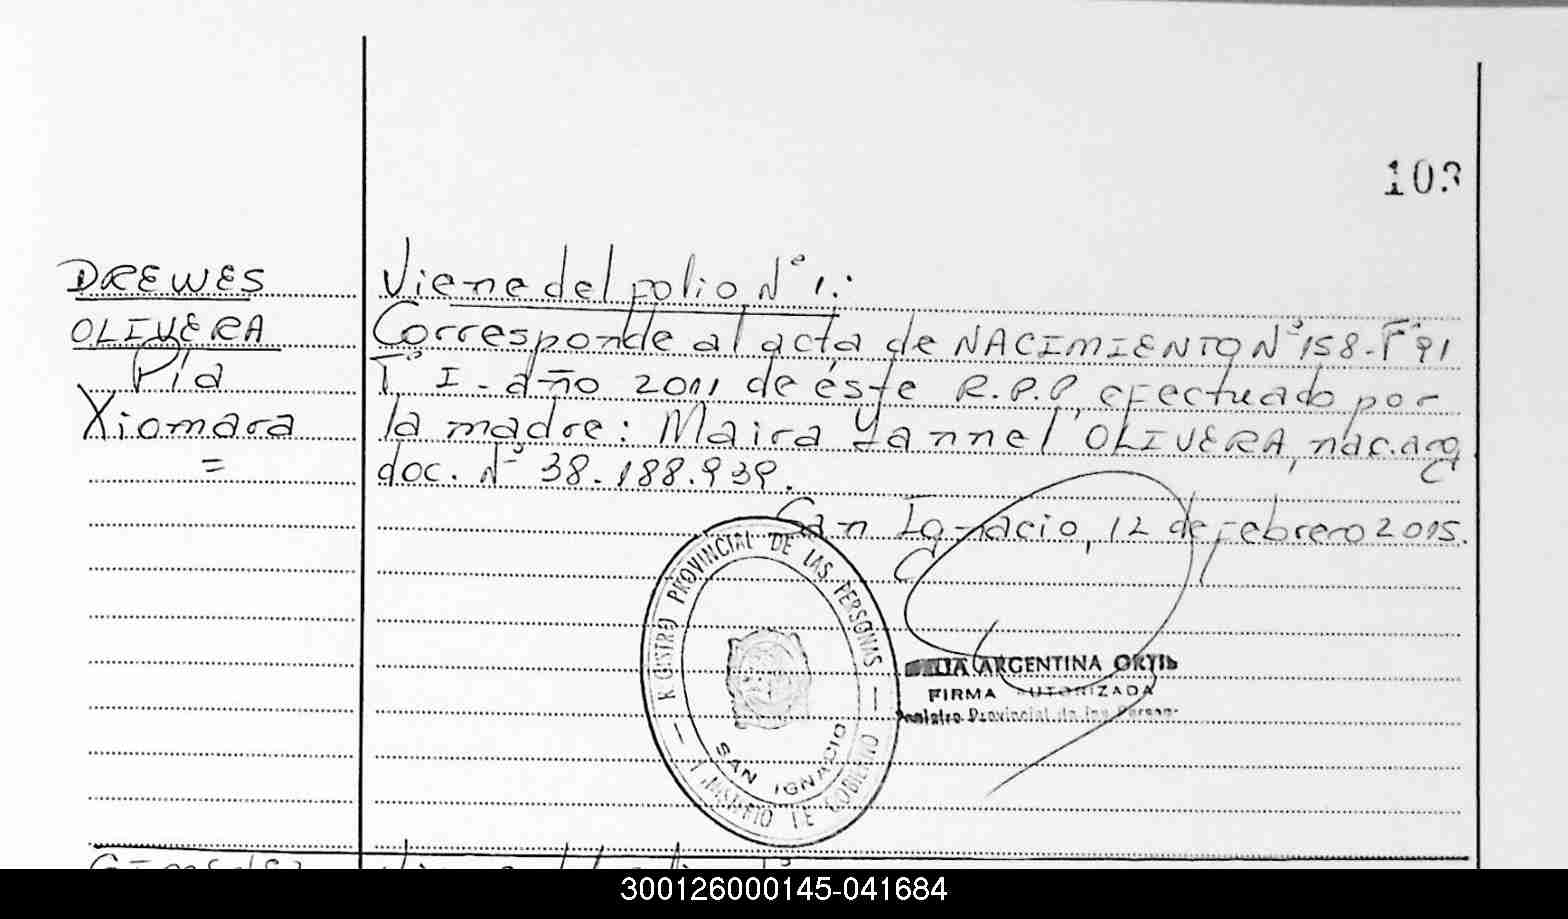 103
DREWES
OLIVERA
Pía
Xiomara
=
Viene del folio Nº 1.:
Corresponde al acta de NACIMIENTO Nº 158-Fº 91
Tº I - año 2011 de éste R.P.P, efectuado por
la madre: Maira Yannel OLIVERA, nac. arg
doc. Nº 38.188.939.
San Ignacio, 12 de febrero 2015.
REGISTRO PROVINCIAL DE LAS PERSONAS
SAN IGNACIO
MINISTERIO DE GOBIERNO
ARGENTINA
FIRMA AUTORIZADA
Registro Provincial de las Personas
300126000145-041684